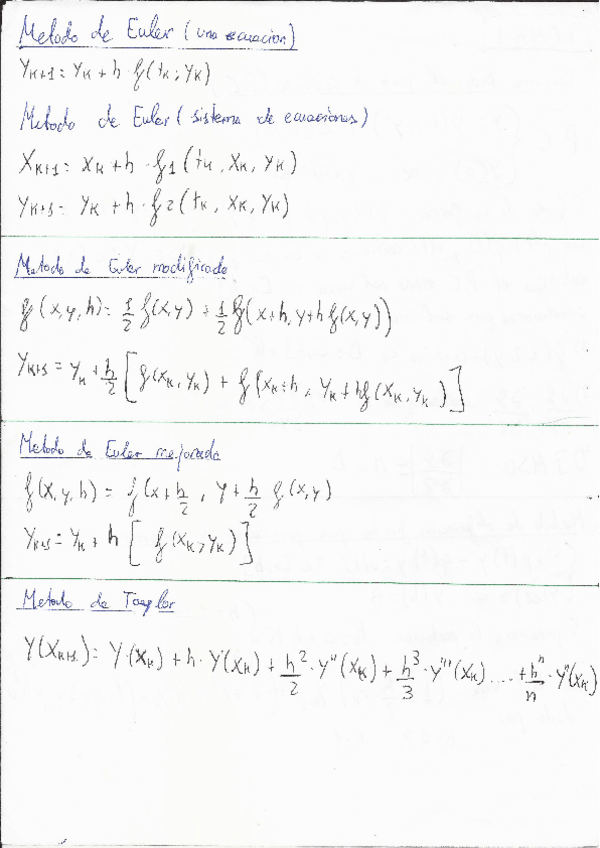 Metodo de Euler (una ecuacion)
Yk+1 = Yk + h f(tk, yk)
Metodo de Euler (sistema de ecuaciones)
Xk+1 = xk + h · f1(tk, Xk, Yk)
Yk+1 = Yk + h · f2(tk, Xk, Yk)
Metodo de Euler modificado
f(x,y,h) = 1/2 f(x,y) + 1/2 f(x+h, y+h f(x,y))
Yk+1 = Yk + h/2 [f(xk, Yk) + f(xk+h, Yk+hf(Xk, Yk)]
Metodo de Euler mejorado
f(x,y,h) = f(x+h/2, y+h/2 f(x,y)
Yk+1 = Yk + h [f(Xk, Yk)]
Metodo de Taylor
Y(Xk+1) = Y(Xk) + h · Y'(Xk) + h²/2 · Y''(Xk) + h³/3 · Y'''(Xk) .... + hⁿ/n · Yⁿ(Xk)